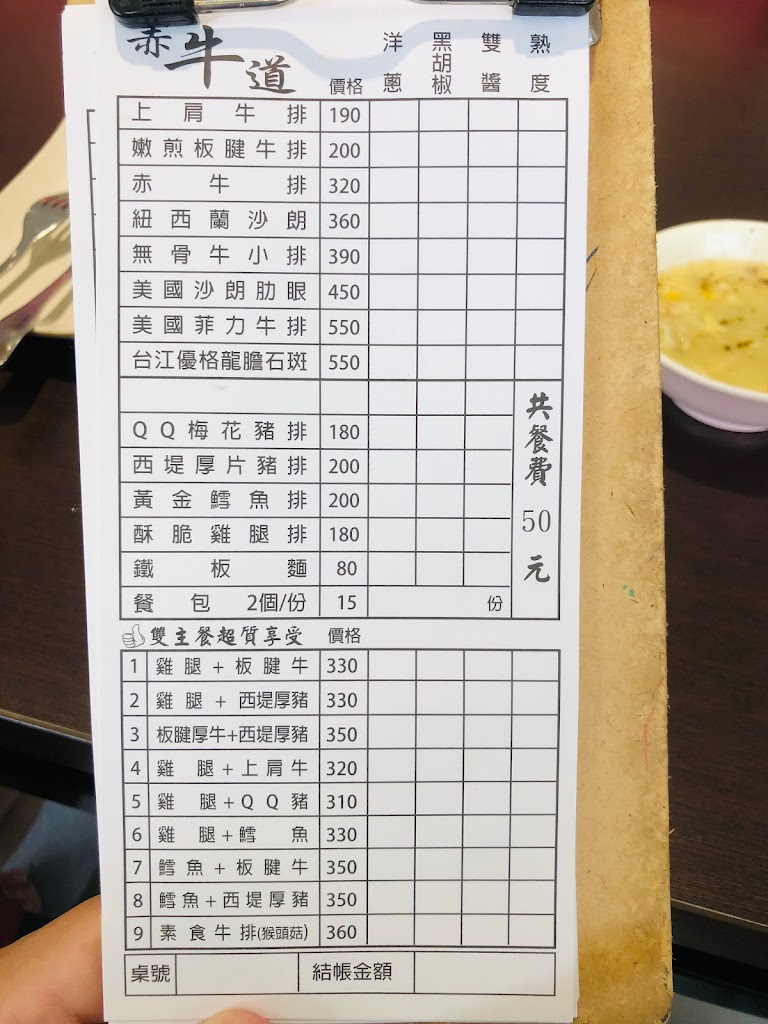 赤牛道 價格 洋蔥 黑胡椒 雙醬 熟度
上肩牛排 190
嫩煎板腱牛排 200
赤牛排 320
紐西蘭沙朗 360
無骨牛小排 390
美國沙朗肋眼 450
美國菲力牛排 550
台江優格龍膽石斑 550
QQ梅花豬排 180
西堤厚片豬排 200
黃金鱈魚排 200
酥脆雞腿排 180
鐵板麵 80
餐包 2個/份 15 份
共餐費 50 元
雙主餐超質享受 價格
1 雞腿+板腱牛 330
2 雞腿+西堤厚豬 330
3 板腱厚牛+西堤厚豬 350
4 雞腿+上肩牛 320
5 雞腿+QQ豬 310
6 雞腿+鱈魚 330
7 鱈魚+板腱牛 350
8 鱈魚+西堤厚豬 350
9 素食牛排(猴頭菇) 360
桌號 結帳金額